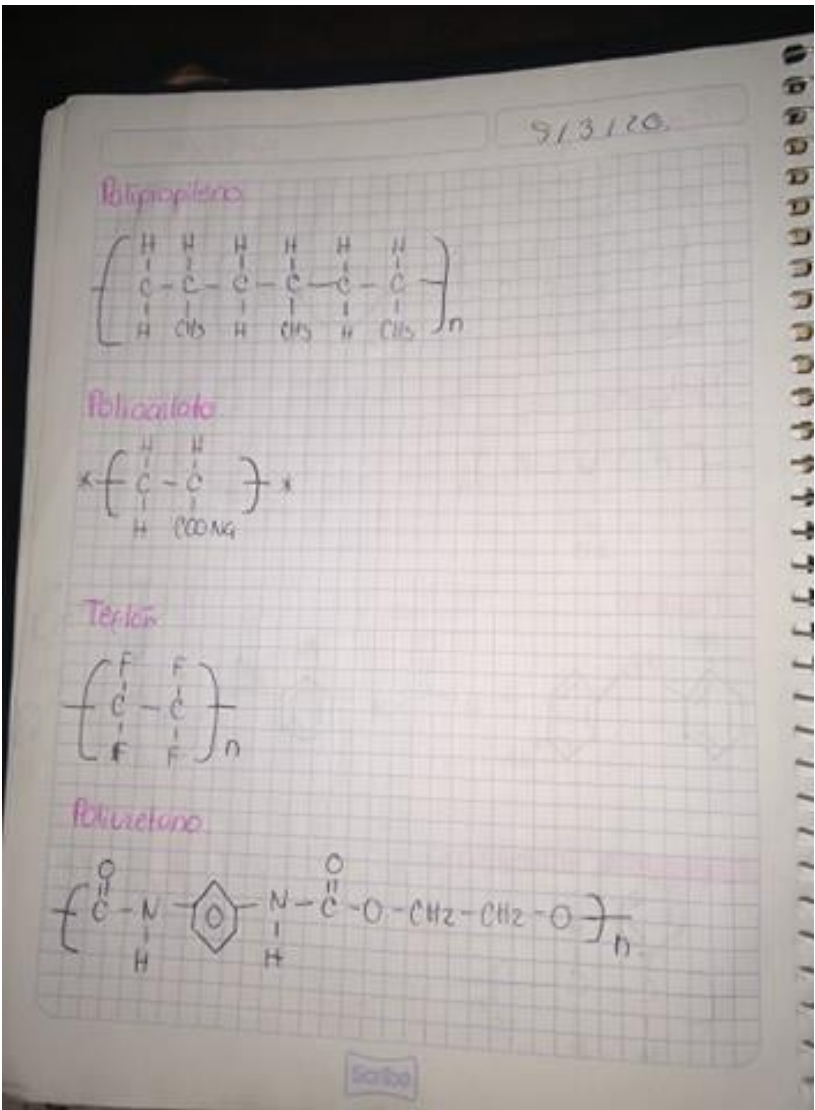 9/3/20
Polipropileno
H H H H H H
C - C - C - C - C - C
H CH3 H CH3 H CH3 n
Poliacilato
H H
* C - C *
H COONa
Teflón
F F
C - C
F F n
Poliuretano
O O
C - N - N - C - O - CH2 - CH2 - O
H H n
Scribe